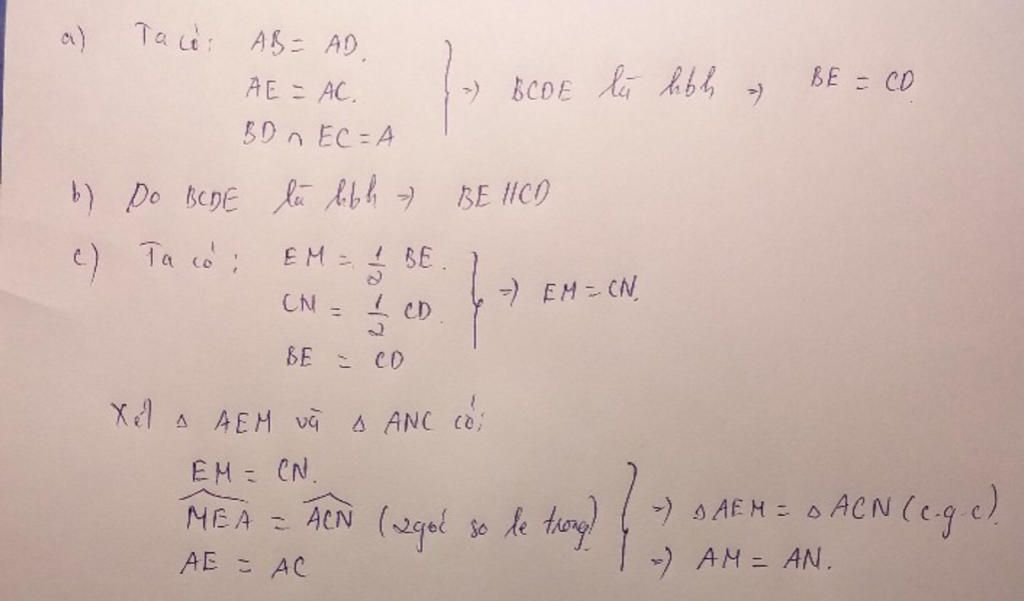 a) Ta có: AB = AD.
AE = AC. } => BCDE là hbh => BE = CD
BD ∩ EC = A
b) Do BCDE là hbh => BE // CD
c) Ta có: EM = 1/2 BE.
CN = 1/2 CD. } => EM = CN.
BE = CD
Xét Δ AEM và Δ ANC có:
EM = CN.
MEA = ACN (2 góc so le trong) } => Δ AEM = Δ ACN (c.g.c).
AE = AC => AM = AN.